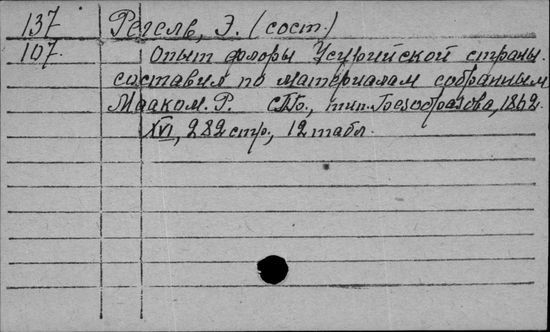 137 Регель, Э. (сост.)
107. Опыт флоры Усурийской страны.
составил по материалам собранным
Мааком. Р. СПб., тип. Безобразова, 1862.
XVI, 282 стр., 12 табл.